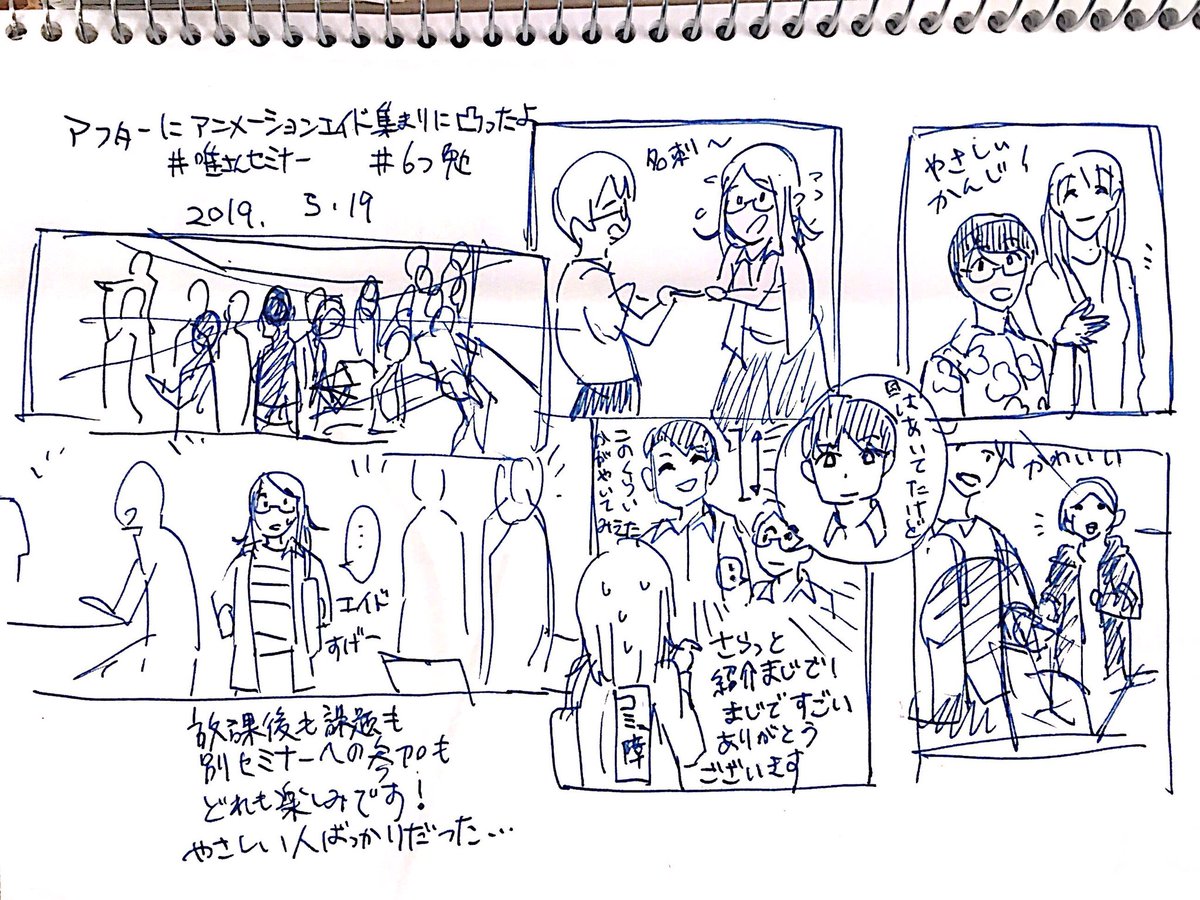 アフターにアニメーションエイド集まりに凸ったよ
#唯立セミナー #6つ勉
2019. 5.19
名刺〜
やさしい
かんじ！
エイド
すげー
このくらい
かがやいて
みえた
目はあいてたけど
さらっと
紹介まじで！
まじですごい
ありがとう
ございます
コミ障
かわいい
放課後も課題も
別セミナーへの参加も
どれも楽しみです！
やさしい人ばっかりだった…